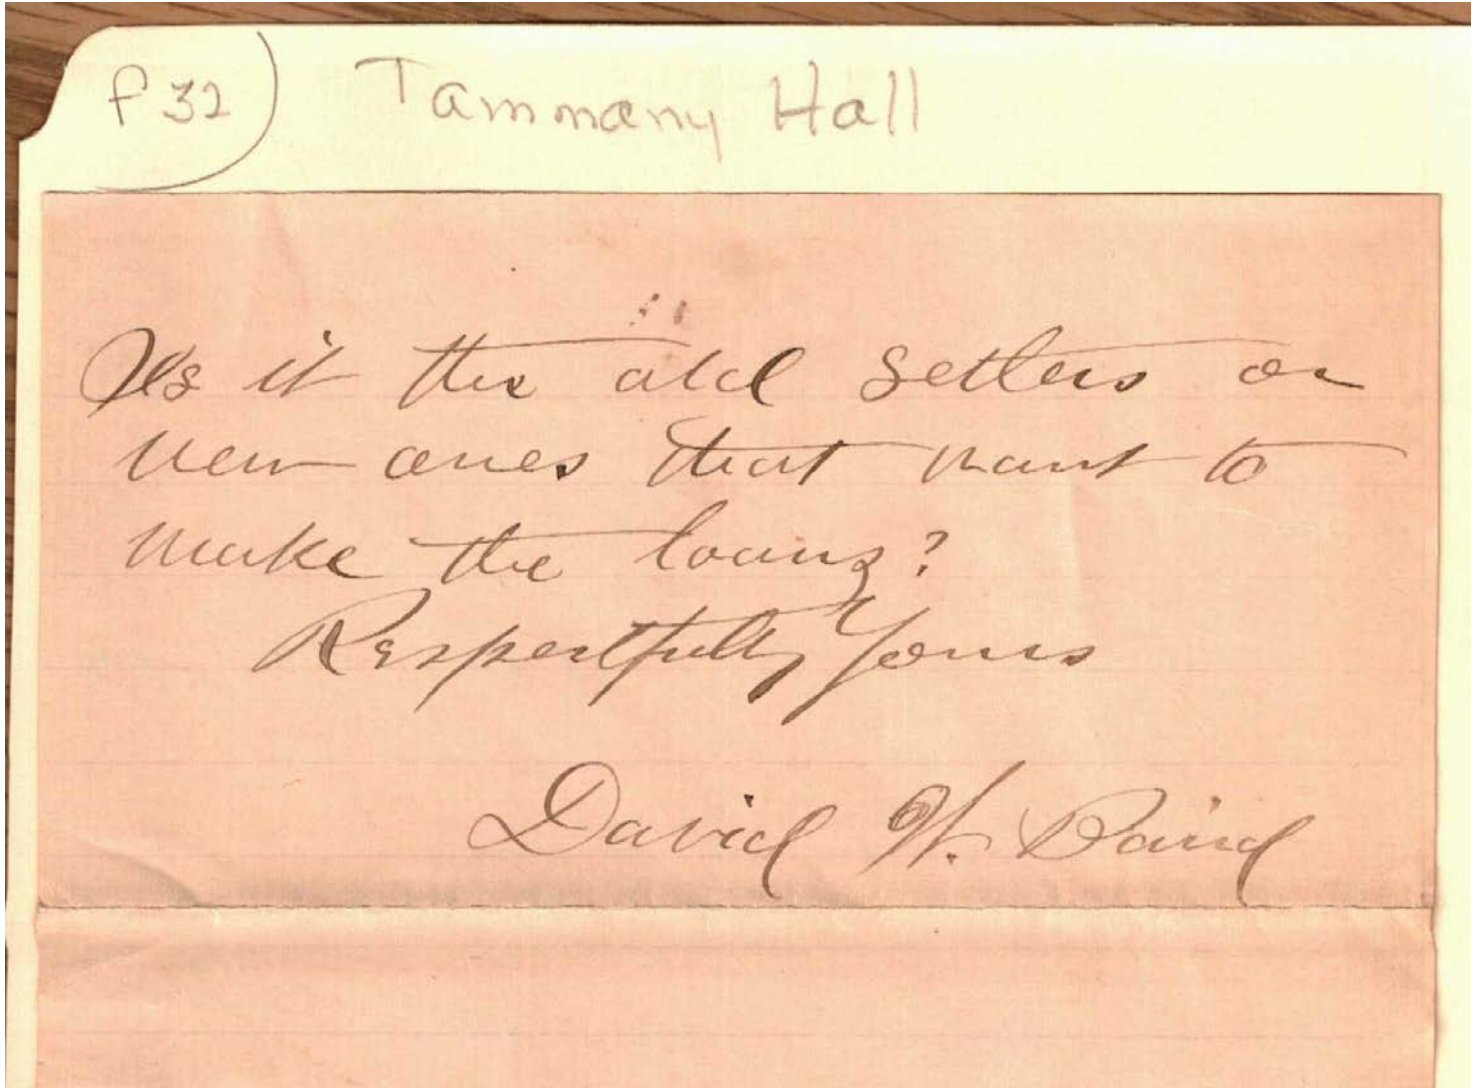 P 32) Tammany Hall
Is it the old Setlers or
new ones that want to
make the loans?
Respectfully Yours
David W. Baird